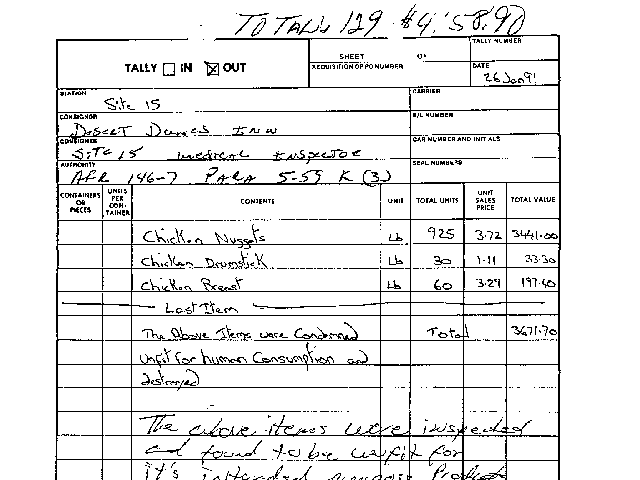 TOTALS 129 $4,158.90
TALLY NUMBER
TALLY IN OUT
SHEET OF
ACQUISITION OR PO NUMBER
DATE
26 Jan 91
STATION
Site 15
CARRIER
CONSIGNOR
Desert Dunes Inn
B/L NUMBER
CONSIGNEE
Site 15 medical Inspector
CAR NUMBER AND INITIALS
AUTHORITY
AFR 146-7 PARA 5-55 K (3)
SEAL NUMBERS
CONTAINERS OR PIECES UNITS PER CON- TAINER CONTENTS UNIT TOTAL UNITS UNIT SALES PRICE TOTAL VALUE
Chicken Nuggets Lb 925 3.72 3441.00
Chicken Drumstick Lb 30 1.11 33.30
Chicken Breast Lb 60 3.29 197.40
Last Item
The Above Items were Condemned Total 3671.70
Unfit for human Consumption and
destroyed
The above items were inspected
and found to be unfit for
it's intended purpose